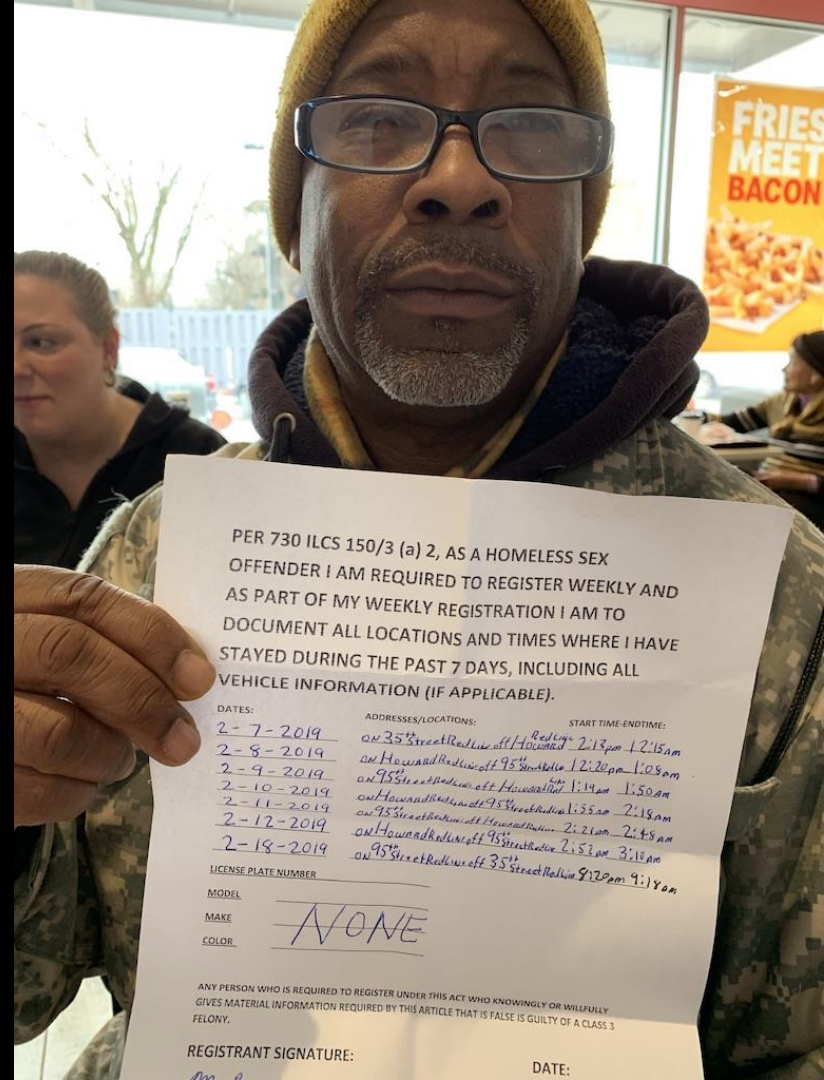 FRIES
MEET
BACON
PER 730 ILCS 150/3 (a) 2, AS A HOMELESS SEX
OFFENDER I AM REQUIRED TO REGISTER WEEKLY AND
AS PART OF MY WEEKLY REGISTRATION I AM TO
DOCUMENT ALL LOCATIONS AND TIMES WHERE I HAVE
STAYED DURING THE PAST 7 DAYS, INCLUDING ALL
VEHICLE INFORMATION (IF APPLICABLE).
DATES: ADDRESSES/LOCATIONS: START TIME-ENDTIME:
2-7-2019 ON 35th Street Red Line off Howard Red Line 2:13pm 12:15am
2-8-2019 ON Howard Red Line off 95th Street Red Line 12:20am 1:05am
2-9-2019 ON 95th Street Red Line off Howard Red Line 1:14am 1:50am
2-10-2019 ON Howard Red Line off 95th Street Red Line 1:55am 2:18am
2-11-2019 ON 95th Street Red Line off Howard Red Line 2:21am 2:48am
2-12-2019 ON Howard Red Line off 95th Street Red Line 2:52am 3:10am
2-18-2019 ON 95th Street Red Line off 35th Street Red Line 8:20am 9:18am
LICENSE PLATE NUMBER
MODEL
MAKE NONE
COLOR
ANY PERSON WHO IS REQUIRED TO REGISTER UNDER THIS ACT WHO KNOWINGLY OR WILLFULLY
GIVES MATERIAL INFORMATION REQUIRED BY THIS ARTICLE THAT IS FALSE IS GUILTY OF A CLASS 3
FELONY.
REGISTRANT SIGNATURE: DATE: